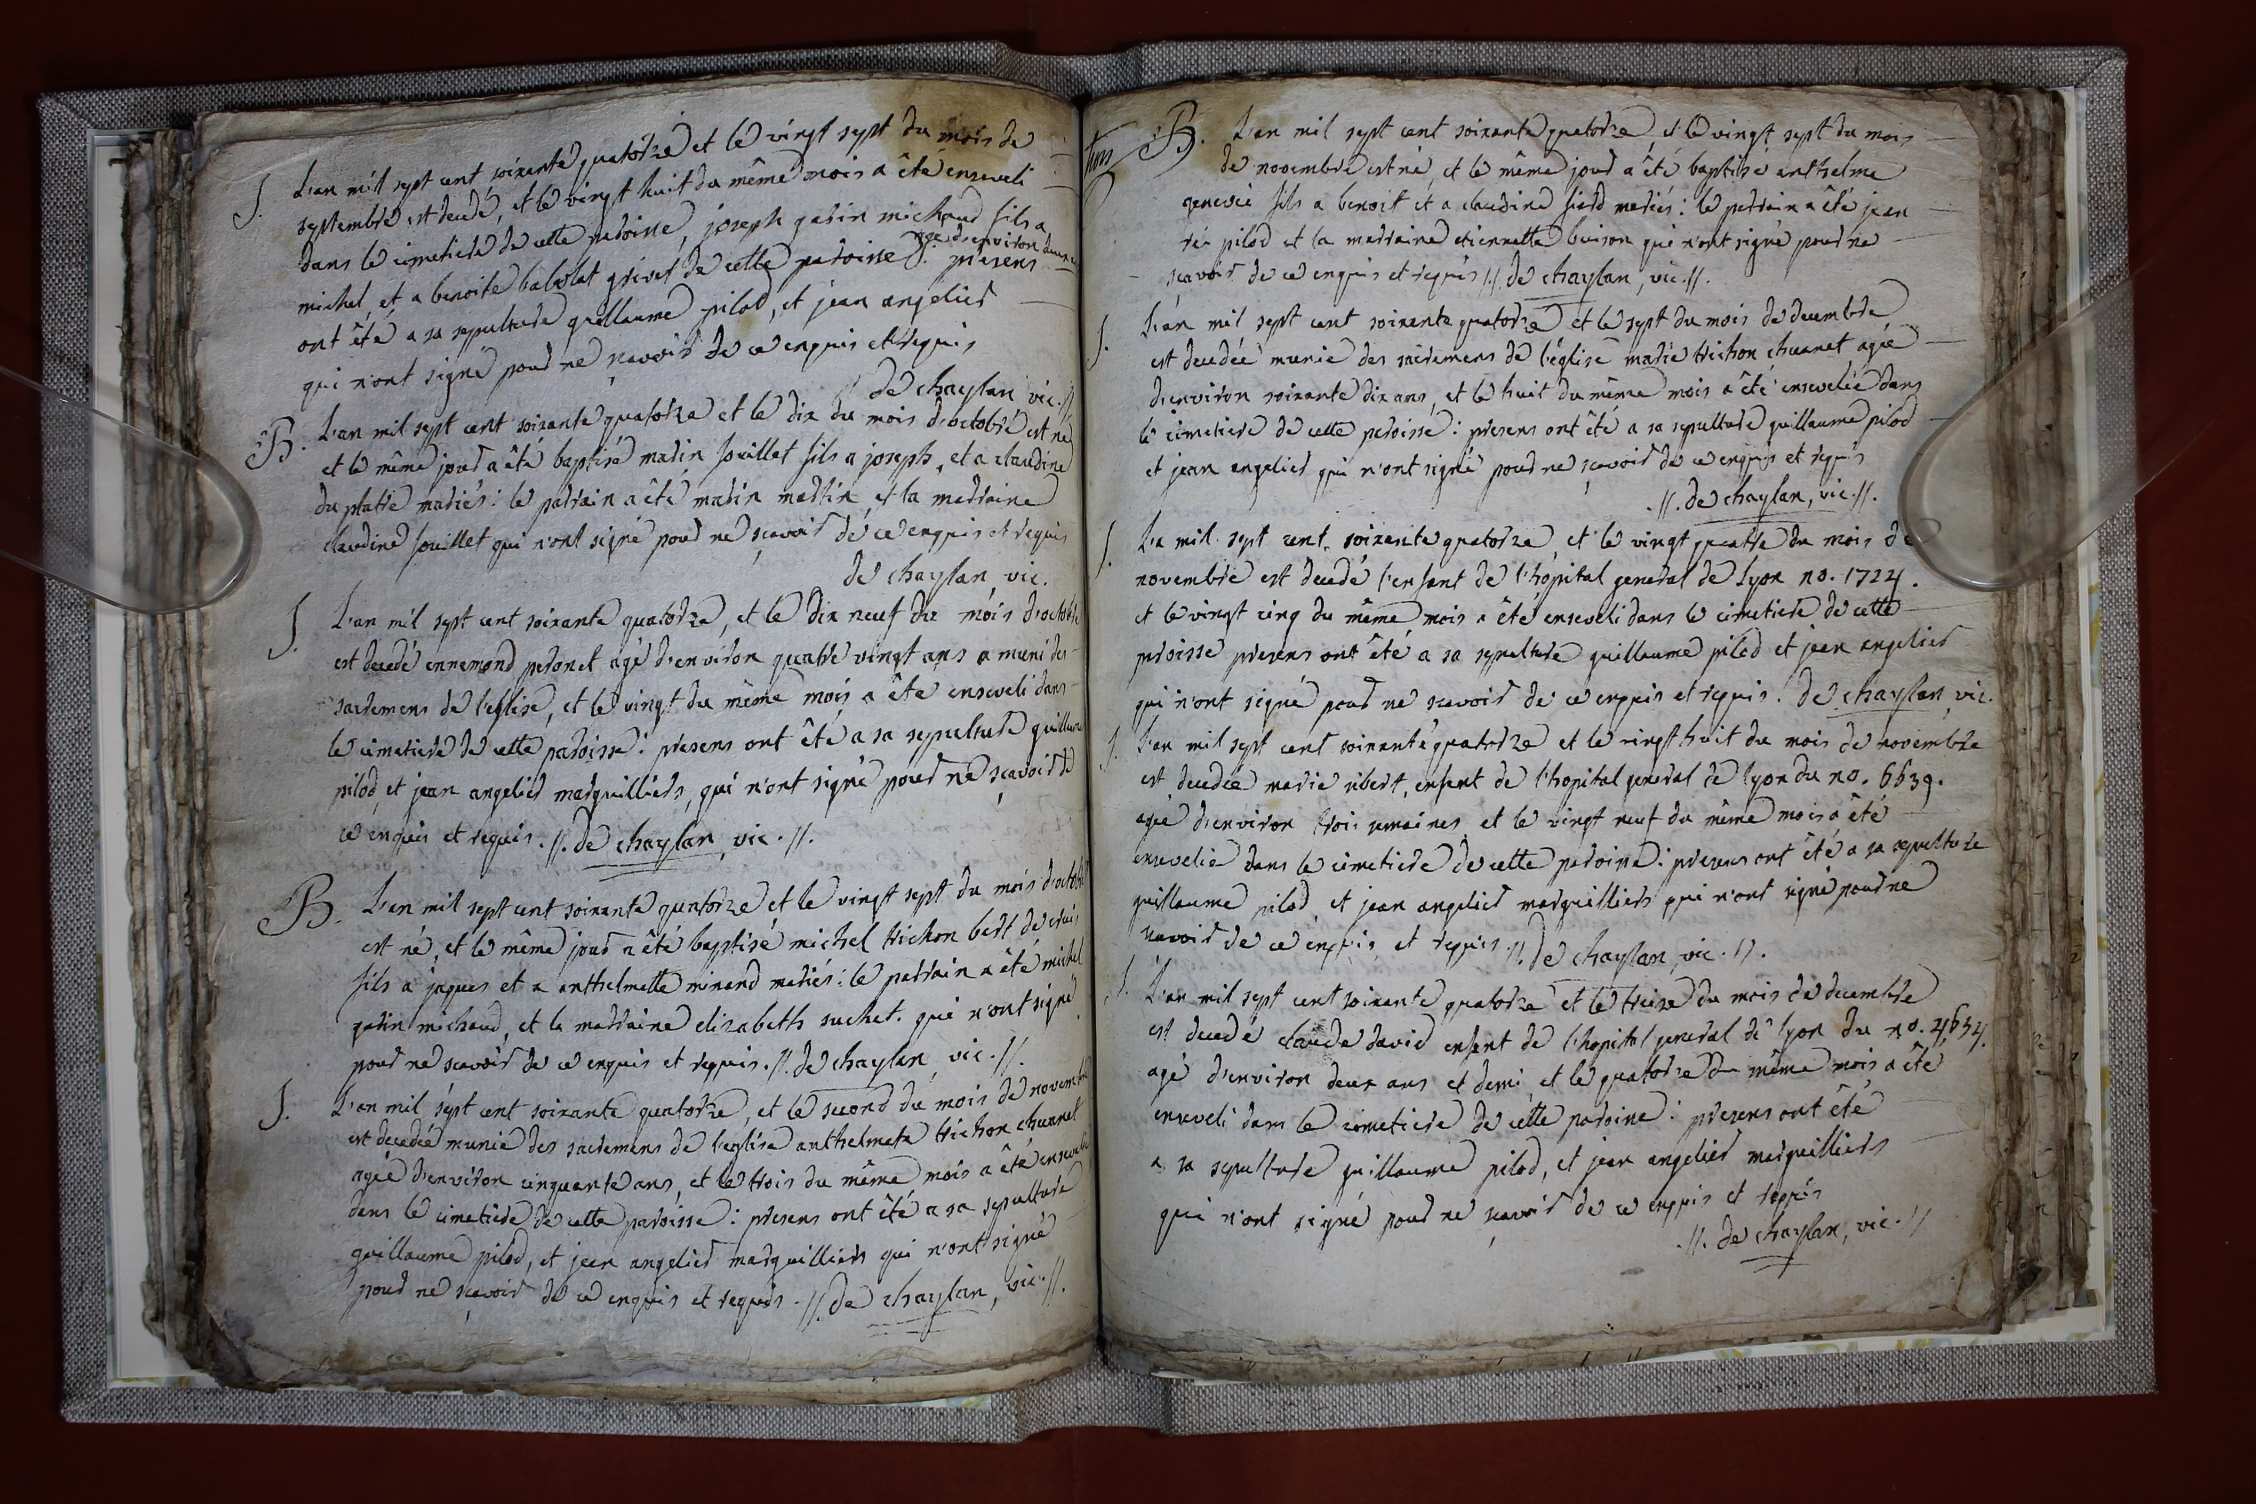 S. L'an mil sept cent soixante quatorze et le vingt sept du mois de
septembre est decedé, et le vingt huit du même mois a été enseveli
dans le cimetiere de cette paroisse, joseph garin michaud fils a
michel, et a benoite babolat grivet de cette paroisse agé d'environ deux
presens
ont été a sa sepulture guillaume pilod, et jean angelier
qui n'ont signé pour ne scavoir de ce enquis et requis
de chaylan vic.//.
B. L'an mil sept cent soixante quatorze et le dix du mois d'octobre est né
et le même jour a été baptisé marin souillet fils a joseph, et a claudine
duplatre mariés : le parrain a été marin martin, et la marraine
claudine souillet qui n'ont signé pour ne scavoir de ce enquis et requis
de chaylan vic.
S. L'an mil sept cent soixante quatorze, et le dix neuf du mois d'octobre
est decedé ennemond peronet agé d'environ quatre vingt ans muni des
sacremens de l'eglise, et le vingt du même mois a été enseveli dans
le cimetiere de cette paroisse : presens ont été a sa sepulture guillaume
pilod, et jean angelier marguilliers, qui n'ont signé pour ne scavoir de
ce enquis et requis.//. de chaylan, vic.//.
B. L'an mil sept cent soixante quatorze et le vingt sept du mois d'octobre
est né, et le même jour a été baptisé michel trichon bert de
fils a jaques et a anthelmette minand mariés : le parrain a été michel
garin michaud, et la marraine elizabeth suchet. qui n'ont signé
pour ne scavoir de ce enquis et requis.//. de chaylan, vic.//.
S. L'an mil sept cent soixante quatorze, et le second du mois de novembre
est decedée munie des sacremens de l'eglise anthelmete trichon chuanet
agée d'environ cinquante ans, et le trois du même mois a été ensevelie
dans le cimetiere de cette paroisse : presens ont été a sa sepulture
guillaume pilod, et jean angelier marguilliers qui n'ont signé
pour ne scavoir de ce enquis et requis.//. de chaylan, vic.//.
B. L'an mil sept cent soixante quatorze, et le vingt sept du mois
de novembre est né, et le même jour a été baptise anthelme
genevié fils a benoit et a claudine siard mariés : le parrain a été jean
pilod et la marraine etiennette buison qui n'ont signé pour ne
scavoir de ce enquis et requis //. de chaylan, vic.//.
S. L'an mil sept cent soixante quatorze et le sept du mois de decembre
est decedée munie des sacremens de l'église marie trichon chuanet agée
d'environ soixante dix ans, et le huit du même mois a été ensevelie dans
le cimetiere de cette paroisse : presens ont été a sa sepulture guillaume pilod
et jean angelier qui n'ont signé pour ne scavoir de ce enquis et requis
.//. de chaylan, vic.//.
S. L'a mil sept cent soixante quatorze, et le vingt quatre du mois de
novembre est decedé l'enfant de l'hopital general de lyon no. 1724.
et le vingt cinq du même mois a été enseveli dans le cimetiere de cette
paroisse presens ont été a sa sepulture guillaume pilod et jean angelier
qui n'ont signé pour ne scavoir de ce enquis et requis. de chaylan, vic.
S. L'an mil sept cent soixante quatorze et le vingt huit du mois de novembre
est decedée marie ribert, enfant de l'hopital general de lyon du no. 6639.
agée d'environ trois semaines, et le vingt neuf du même mois a été
ensevelie dans le cimetiere de cette paroisse : presens ont été a sa sepulture
guillaume pilod, et jean angelier marguilliers qui n'ont signé pour ne
scavoir de ce enquis, et requis.//. de chaylan, vic.//.
S. L'an mil sept cent soixante quatorze et le treize du mois de decembre
est decedé claude david enfant de l'hopital general de lyon du no. 4634.
agé d'environ deux ans et demi, et le quatorze du même mois a été
enseveli dans le cimetiere de cette paroisse : presens ont été
a sa sepulture guillaume pilod, et jean angelier marguilliers
qui n'ont signé pour ne scavoir de ce enquis et requis
.//. de chaylan, vic.//